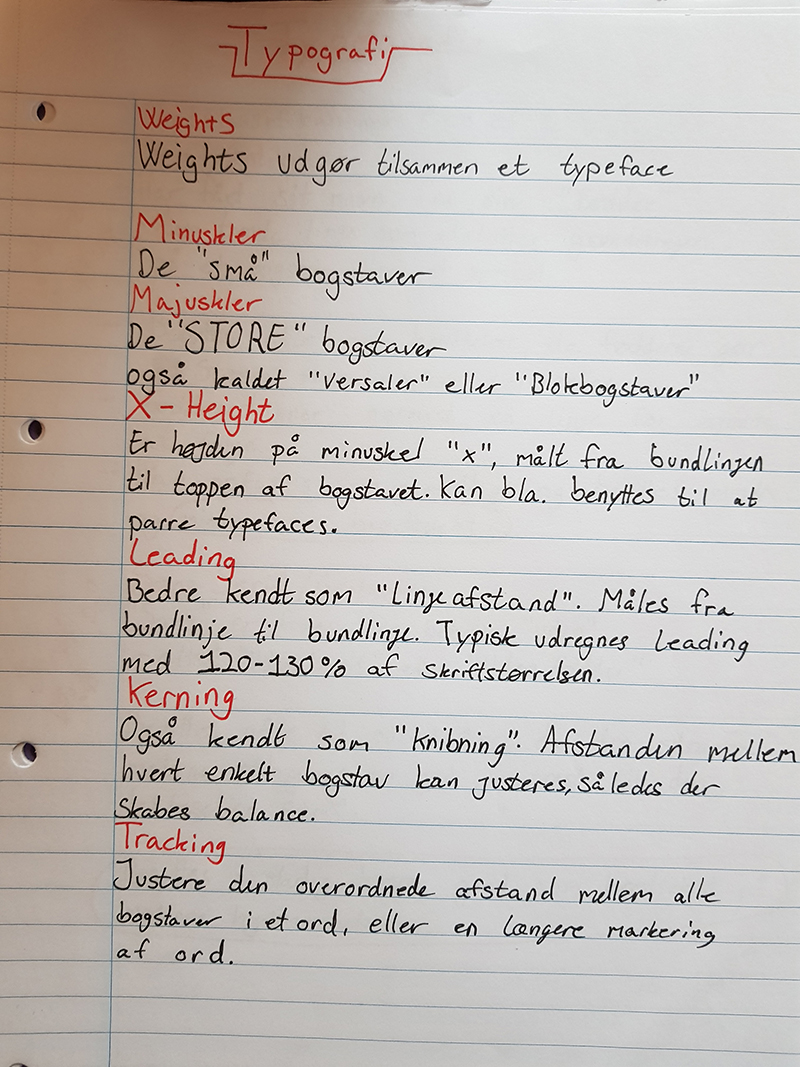 Typografi
Weights
Weights udgør tilsammen et typeface
Minuskler
De "små" bogstaver
Majuskler
De "STORE" bogstaver
også kaldet "Versaler" eller "Blokbogstaver"
X-Height
Er højden på minuskel "x", målt fra bundlinjen
til toppen af bogstavet. Kan bla. benyttes til at
parre typefaces.
Leading
Bedre kendt som "Linjeafstand". Måles fra
bundlinje til bundlinje. Typisk udregnes Leading
med 120-130% af skriftstørrelsen.
Kerning
Også kendt som "Knibning". Afstanden mellem
hvert enkelt bogstav kan justeres, således der
skabes balance.
Tracking
Justere den overordnede afstand mellem alle
bogstaver i et ord, eller en længere markering
af ord.